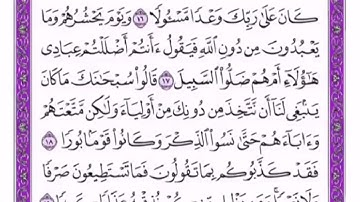 كَانَ عَلَىٰ رَبِّكَ وَعۡدٗا مَّسۡـُٔولٗا ١٦ وَيَوۡمَ يَحۡشُرُهُمۡ وَمَا
يَعۡبُدُونَ مِن دُونِ ٱللَّهِ فَيَقُولُ ءَأَنتُمۡ أَضۡلَلۡتُمۡ عِبَادِي
هَـٰٓؤُلَآءِ أَمۡ هُمۡ ضَلُّواْ ٱلسَّبِيلَ ١٧ قَالُواْ سُبۡحَـٰنَكَ مَا كَانَ
يَنۢبَغِي لَنَآ أَن نَّتَّخِذَ مِن دُونِكَ مِنۡ أَوۡلِيَآءَ وَلَـٰكِن مَّتَّعۡتَهُمۡ
وَءَابَآءَهُمۡ حَتَّىٰ نَسُواْ ٱلذِّكۡرَ وَكَانُواْ قَوۡمَۢا بُورٗا ١٨
فَقَدۡ كَذَّبُوكُم بِمَا تَقُولُونَ فَمَا تَسۡتَطِيعُونَ صَرۡفٗا